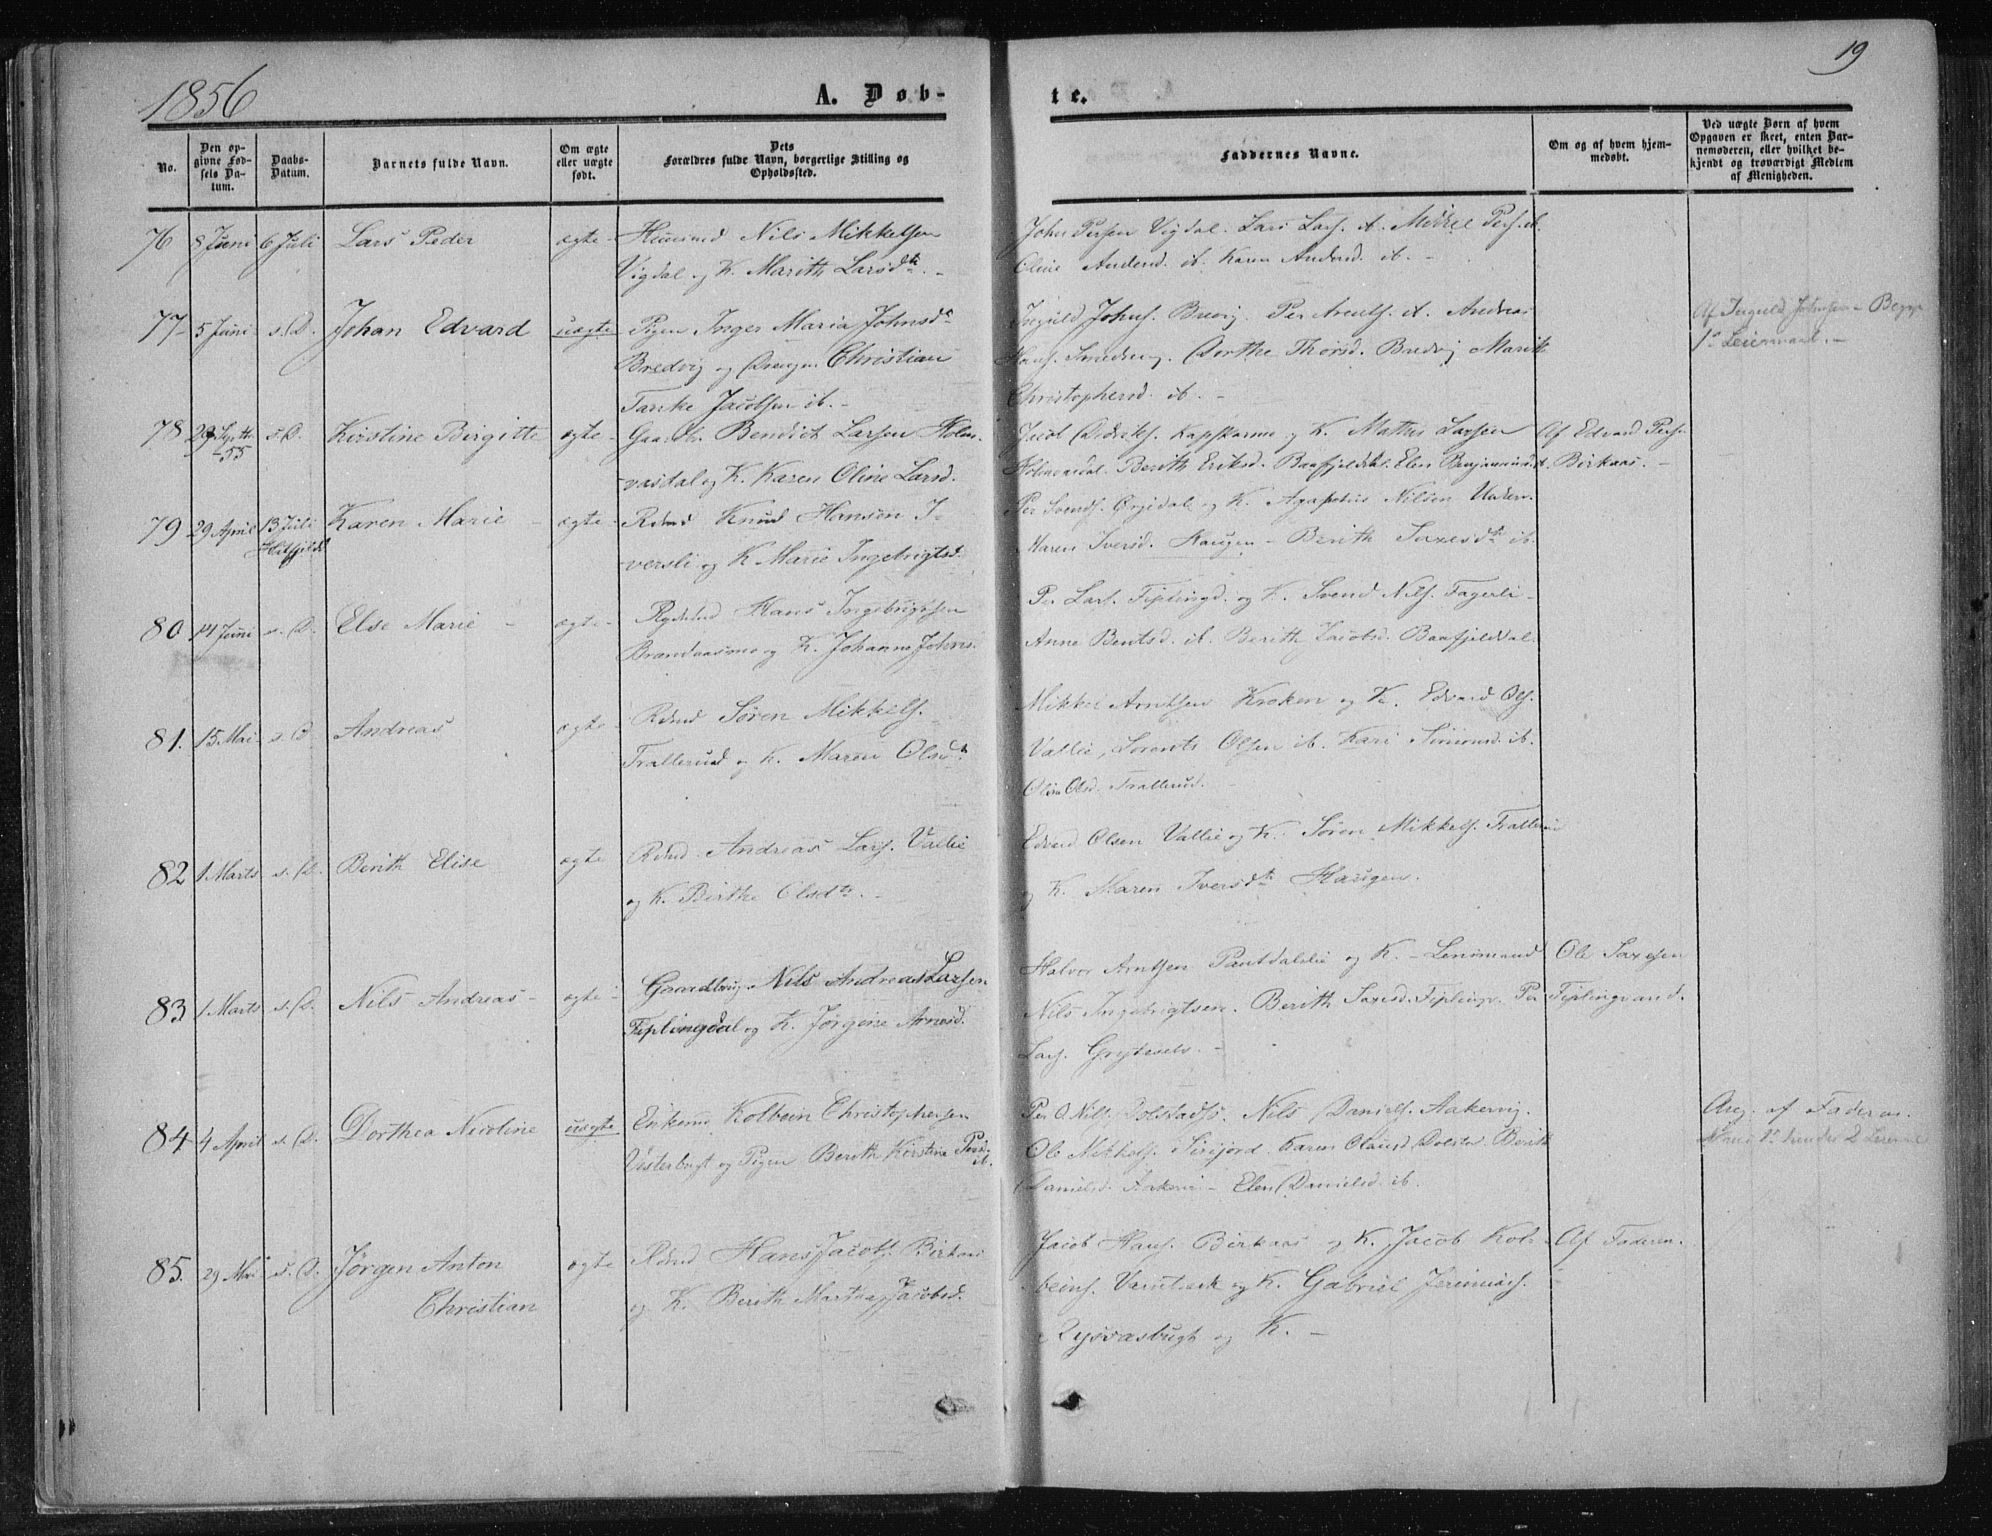 1856
A. Døb-
te.
19
No.
Den opgivne Fødsels Datum.
Daabs-Datum.
Barnets fulde Navn.
Om ægte eller uægte født.
Dets Forældres fulde Navn, borgerlige Stilling og Opholdssted.
Faddernes Navne.
Om og af hvem hjemmedøbt.
Ved uægte Børn af hvem Opgaven er skeet, enten Barnemoderen, eller hvilket bekjendt og troværdigt Medlem af Menigheden.
76 8 Juni 6 Juli Lars Peder ægte Nils Mikkelsen
Vigdal og K. Marith Larsdtr. -
John Persen Vigdal. Lars Lars. Mikkel Pers. ib.
Oline Andersd. ib. Karen Andersd. ib. -
77 5 Juni s. D. Johan Edvard uægte Pigen Inger Maria Johnsdr
Bredvig og Drengen Christian
Tanke Jacobsen ib. -
Ingvld Johns. Per Arents. Andreas
Hans. Dorthe Thorsd. Bredvig Marith
Christophersd. ib. -
Af Ingvld Johnsen - Begges
1ste Leiermaal. -
78 s. D. Kirstine Birgitte ægte Bendict Larsen Holm-
vasdal og K. Karen Oline Larsd.
Jacob Didriks. Kapskarmo og K. Mathis Larsen
Holmvasdal. Berith Eriksd. Baafjeldal. Elen Benjaminsd.
Af Edvard Pers.
Birkaas. -
79 29 April 13 Juli Karen Marie ægte Knud Hansen I-
versli og K. Marie Ingebrigtsd.
Per Svends. og K. Agapetus Nilsen
Maren Iversd. Haugen - Berith Saxesdtr ib.
80 14 Juni s. D. Else Marie ægte Hans Ingebrigtsen
Brandaasmo og K. Johanna Johnsd.
Per Lars. Fiplingd. og K. Svend Nils. Fagerli -
Anne Bentsd. ib. Berith Jacobsd. Baafjeldal.
81. 15 Mai s. D. Andreas ægte Rdmd Søren Mikkels.
Trallerud og K. Maren Olsdtr
Mikkel Arntsen Kroken og K. Edvard Ols.
Vallie, Lorents Olsen ib. Kari Simonsd. ib.
Oline Olsd. Trallerud.
82 1 Marts s. D. Berith Elise ægte Rdmd Andreas Lars. Vallie
og K. Birthe Olsdtr. -
Edvard Olsen Vallie og K. Søren Mikkels. Trallerud
og K. Maren Iversdtr Haugen.
83 1 Marts s. D. Nils Andreas ægte Gaardbrug. Nils Andreas Larsen
Fiplingdal og K. Jørgine Arnesd.
Halvor Arntsen Pantdalslie og K. - Lensmand
Nils Ingebrigtsen. Berith Saxesd. Fiplingv. Per
Lars. Gryteselv. -
Ole Saxesen
Fiplingvand.
84 4 April s. D. Dorthea Nicoline uægte Enkem. Kolbein Christophersen
Vesterbugt og Pigen Berith Kirstine Persd. ib.
Per O Nils. Dolstad. Nils Daniels. Aakervig.
Ole Mikkels. Sirijord. Karen Olausd. Dolstad. Berith
Danielsd. - Elen Danielsd. ib.
Ang. af Faderen.
85. 29 Mai s. D. Jørgen Anton ægte Rdmd Hans Jacobs. Birkaas
Christian og K. Berith Martha Jacobsd.
Jacob Hans. Birkaas og K. Jacob Kol-
beins. og K. Gabriel Jeremias.
Rysvasbugt og K. -
Af Faderen.